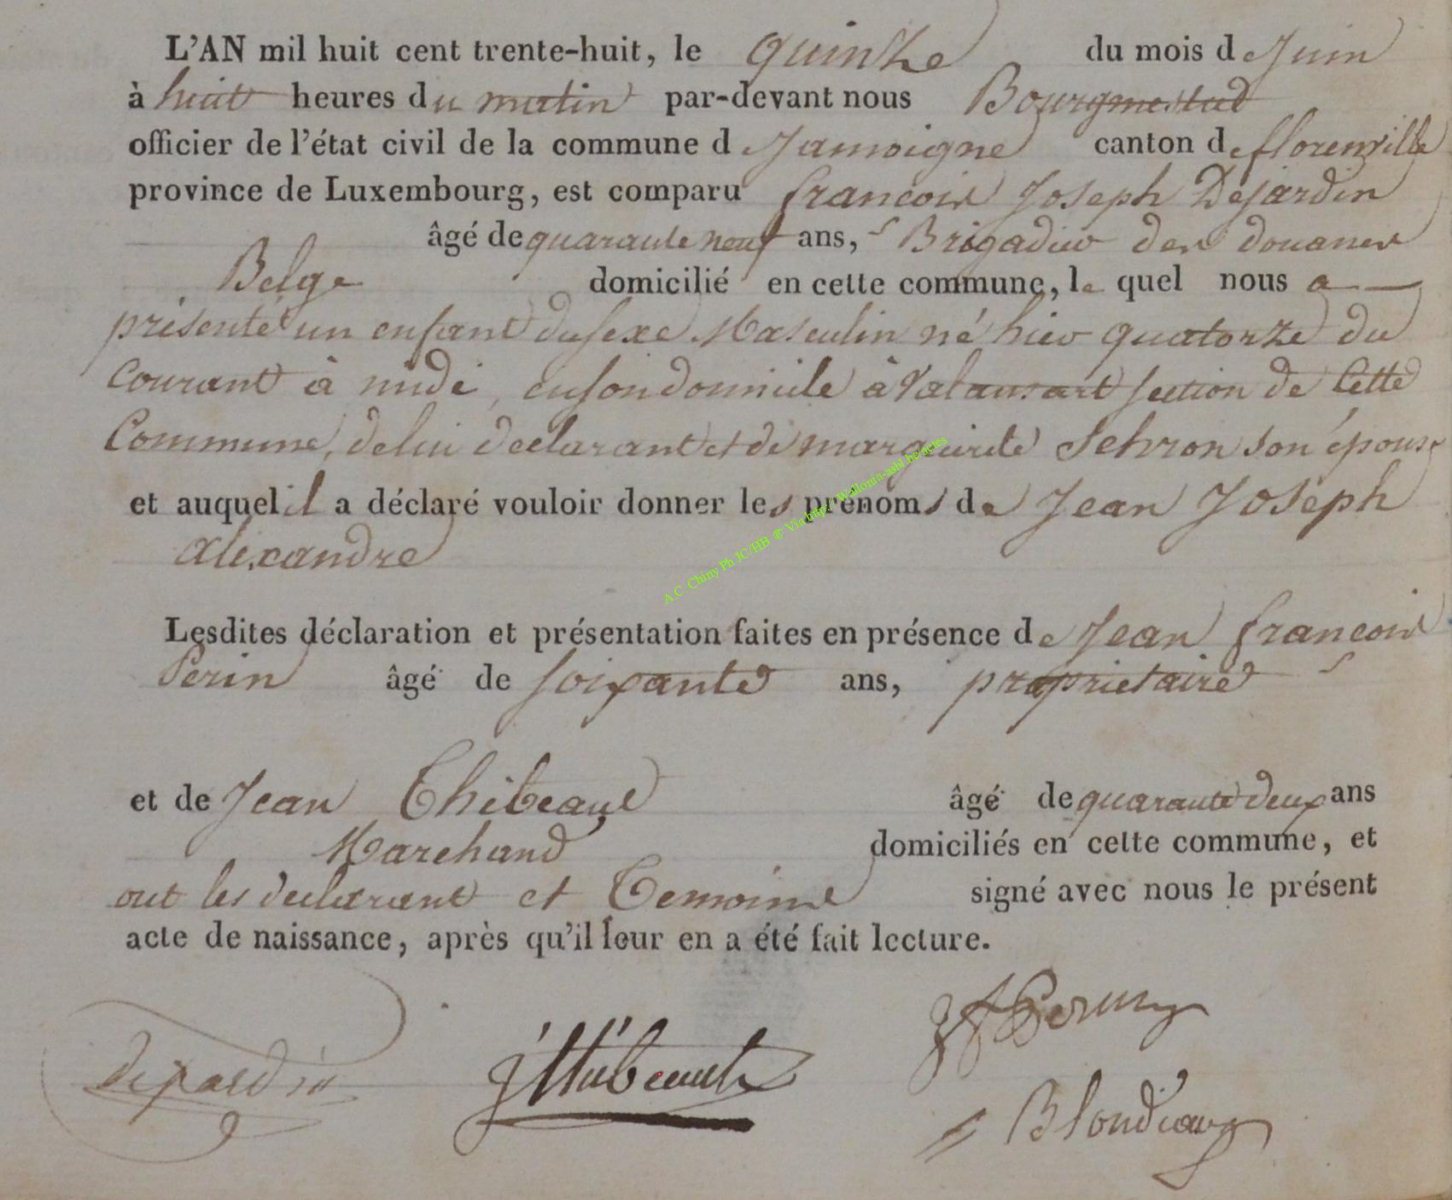 L'AN mil huit cent trente-huit, le quinze du mois de Juin
à huit heures du matin par-devant nous Bourgmestre
officier de l'état civil de la commune d Jamoigne canton de florenville
province de Luxembourg, est comparu francois Joseph Dejardin
âgé de quarante neuf ans, Brigadier des douanes
Belge domicilié en cette commune, le quel nous a
présenté un enfant du sexe Masculin né hier quatorze du
Courant à midi, en son domicile à Valansart section de Cette
Commune, de lui declarant et de marguerite Sehron son épouse
et auquel il a déclaré vouloir donner les prénoms de Jean Joseph
alexandre
Lesdites déclaration et présentation faites en présence de Jean francois
Perin âgé de soixante ans, propriétaire
et de Jean Thibeaul âgé de quarante deux ans
Marchand domiciliés en cette commune, et
ont les declarant et Temoins signé avec nous le présent
acte de naissance, après qu'il leur en a été fait lecture.
dejardin jthibeault jfPerin
Blondiaux
A.C. Chiny Ph JC/HB @ Via